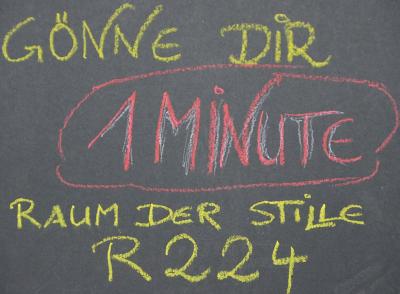 GÖNNE DIR
1 MINUTE
RAUM DER STILLE
R224